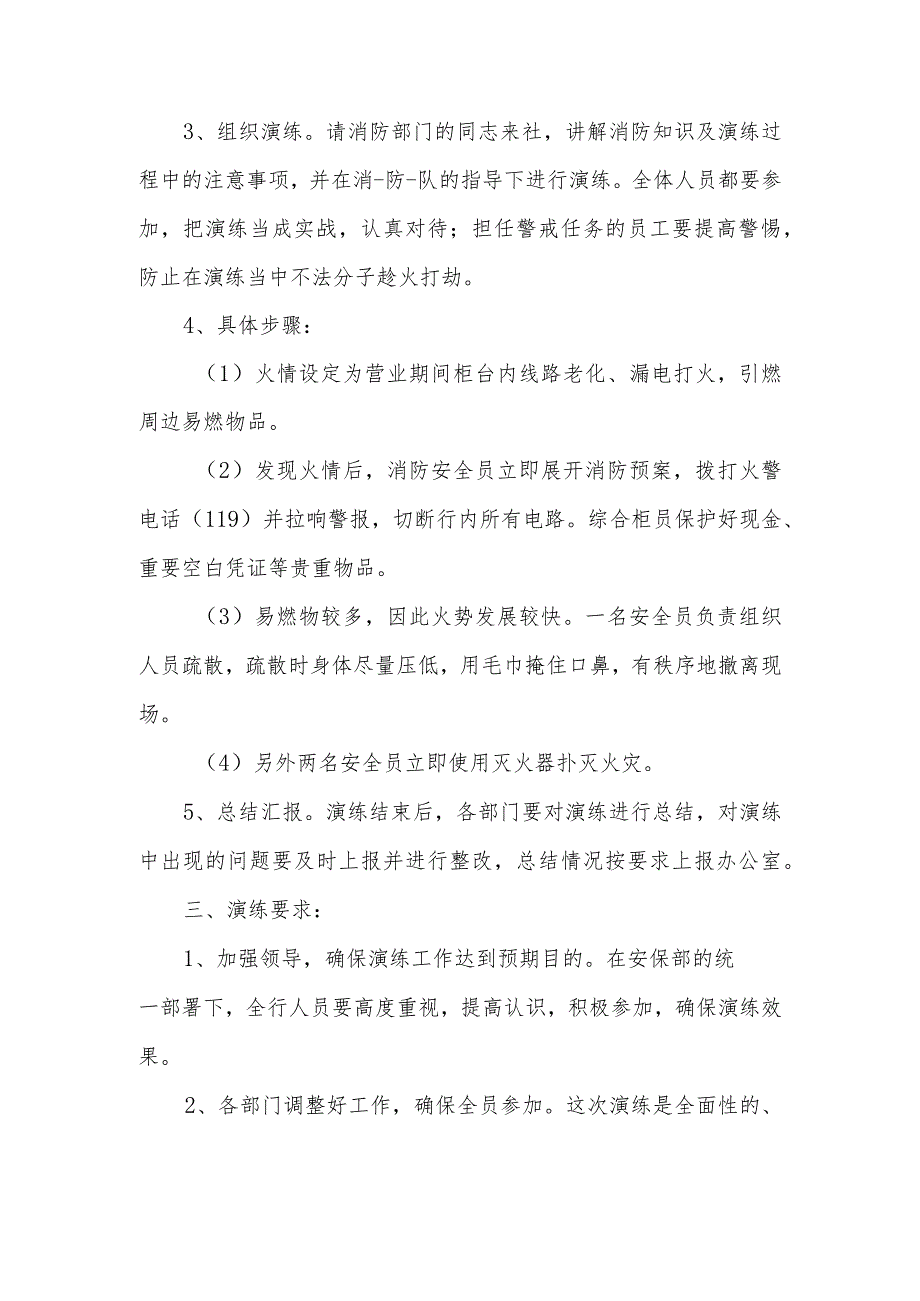 3、组织演练。请消防部门的同志来社，讲解消防知识及演练过
程中的注意事项，并在消-防-队的指导下进行演练。全体人员都要参
加，把演练当成实战，认真对待；担任警戒任务的员工要提高警惕，
防止在演练当中不法分子趁火打劫。
4、具体步骤：
（1）火情设定为营业期间柜台内线路老化、漏电打火，引燃
周边易燃物品。
（2）发现火情后，消防安全员立即展开消防预案，拨打火警
电话（119）并拉响警报，切断行内所有电路。综合柜员保护好现金、
重要空白凭证等贵重物品。
（3）易燃物较多，因此火势发展较快。一名安全员负责组织
人员疏散，疏散时身体尽量压低，用毛巾掩住口鼻，有秩序地撤离现
场。
（4）另外两名安全员立即使用灭火器扑灭火灾。
5、总结汇报。演练结束后，各部门要对演练进行总结，对演练
中出现的问题要及时上报并进行整改，总结情况按要求上报办公室。
三、演练要求：
1、加强领导，确保演练工作达到预期目的。在安保部的统
一部署下，全行人员要高度重视，提高认识，积极参加，确保演练效
果。
2、各部门调整好工作，确保全员参加。这次演练是全面性的、